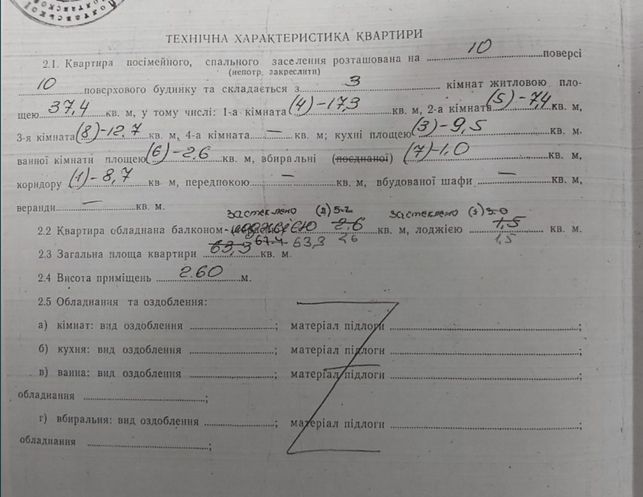 ТЕХНІЧНА ХАРАКТЕРИСТИКА КВАРТИРИ
2.1. Квартира посімейного, спального заселення розташована на 10 поверсі
(непотр. закреслити)
10 поверхового будинку та складається з 3 кімнат житловою пло-
щею 37,4 кв. м, у тому числі: 1-а кімната (4)-17,3 кв. м, 2-а кімната (5)-7,4 кв. м,
3-я кімната (8)-12,7 кв. м, 4-а кімната — кв. м; кухні площею (3)-9,5 кв. м,
ванної кімнати площею (6)-2,6 кв. м, вбиральні (поєднаної) (7)-1,0 кв. м,
коридору (1)-8,7 кв. м, передпокою — кв. м, вбудованої шафи — кв. м,
веранди — кв. м.
застеклено (2) 5.2 застеклено (9) 3.0
2.2 Квартира обладнана балконом- 2.6 кв. м, лоджією 1,5 кв. м.
63,3 67.4 63,3 2.6 1,5
2.3 Загальна площа квартири кв. м.
2.4 Висота приміщень 2.60 м.
2.5 Обладнання та оздоблення:
а) кімнат: вид оздоблення ; матеріал підлоги ;
б) кухня: вид оздоблення ; матеріал підлоги ;
в) ванна: вид оздоблення ; матеріал підлоги ;
обладнання ;
г) вбиральня: вид оздоблення ; матеріал підлоги ;
обладнання ;